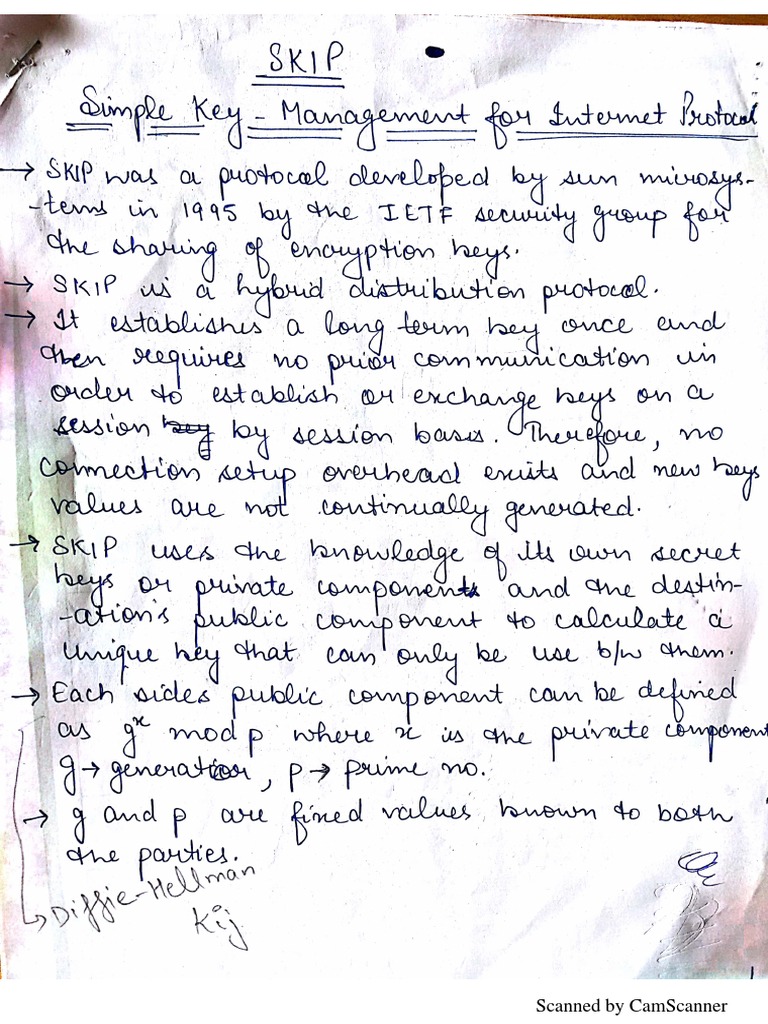 SKIP
Simple Key - Management for Internet Protocol
→ SKIP was a protocol developed by sun microsys-
-tems in 1995 by the IETF security group for
the sharing of encryption keys.
→ SKIP is a hybrid distribution protocol.
→ It establishes a long term key once and
then requires no prior communication in
order to establish or exchange keys on a
session key by session basis. Therefore, no
connection setup overhead exists and new keys
values are not continually generated.
→ SKIP uses the knowledge of its own secret
keys or private components and the destin-
-ation's public component to calculate a
unique key that can only be use b/w them.
→ Each sides public component can be defined
as g^x mod p where x is the private component
g → generator, p → prime no.
→ g and p are fixed values known to both
the parties.
↳ Diffie-Hellman
Kij
Scanned by CamScanner